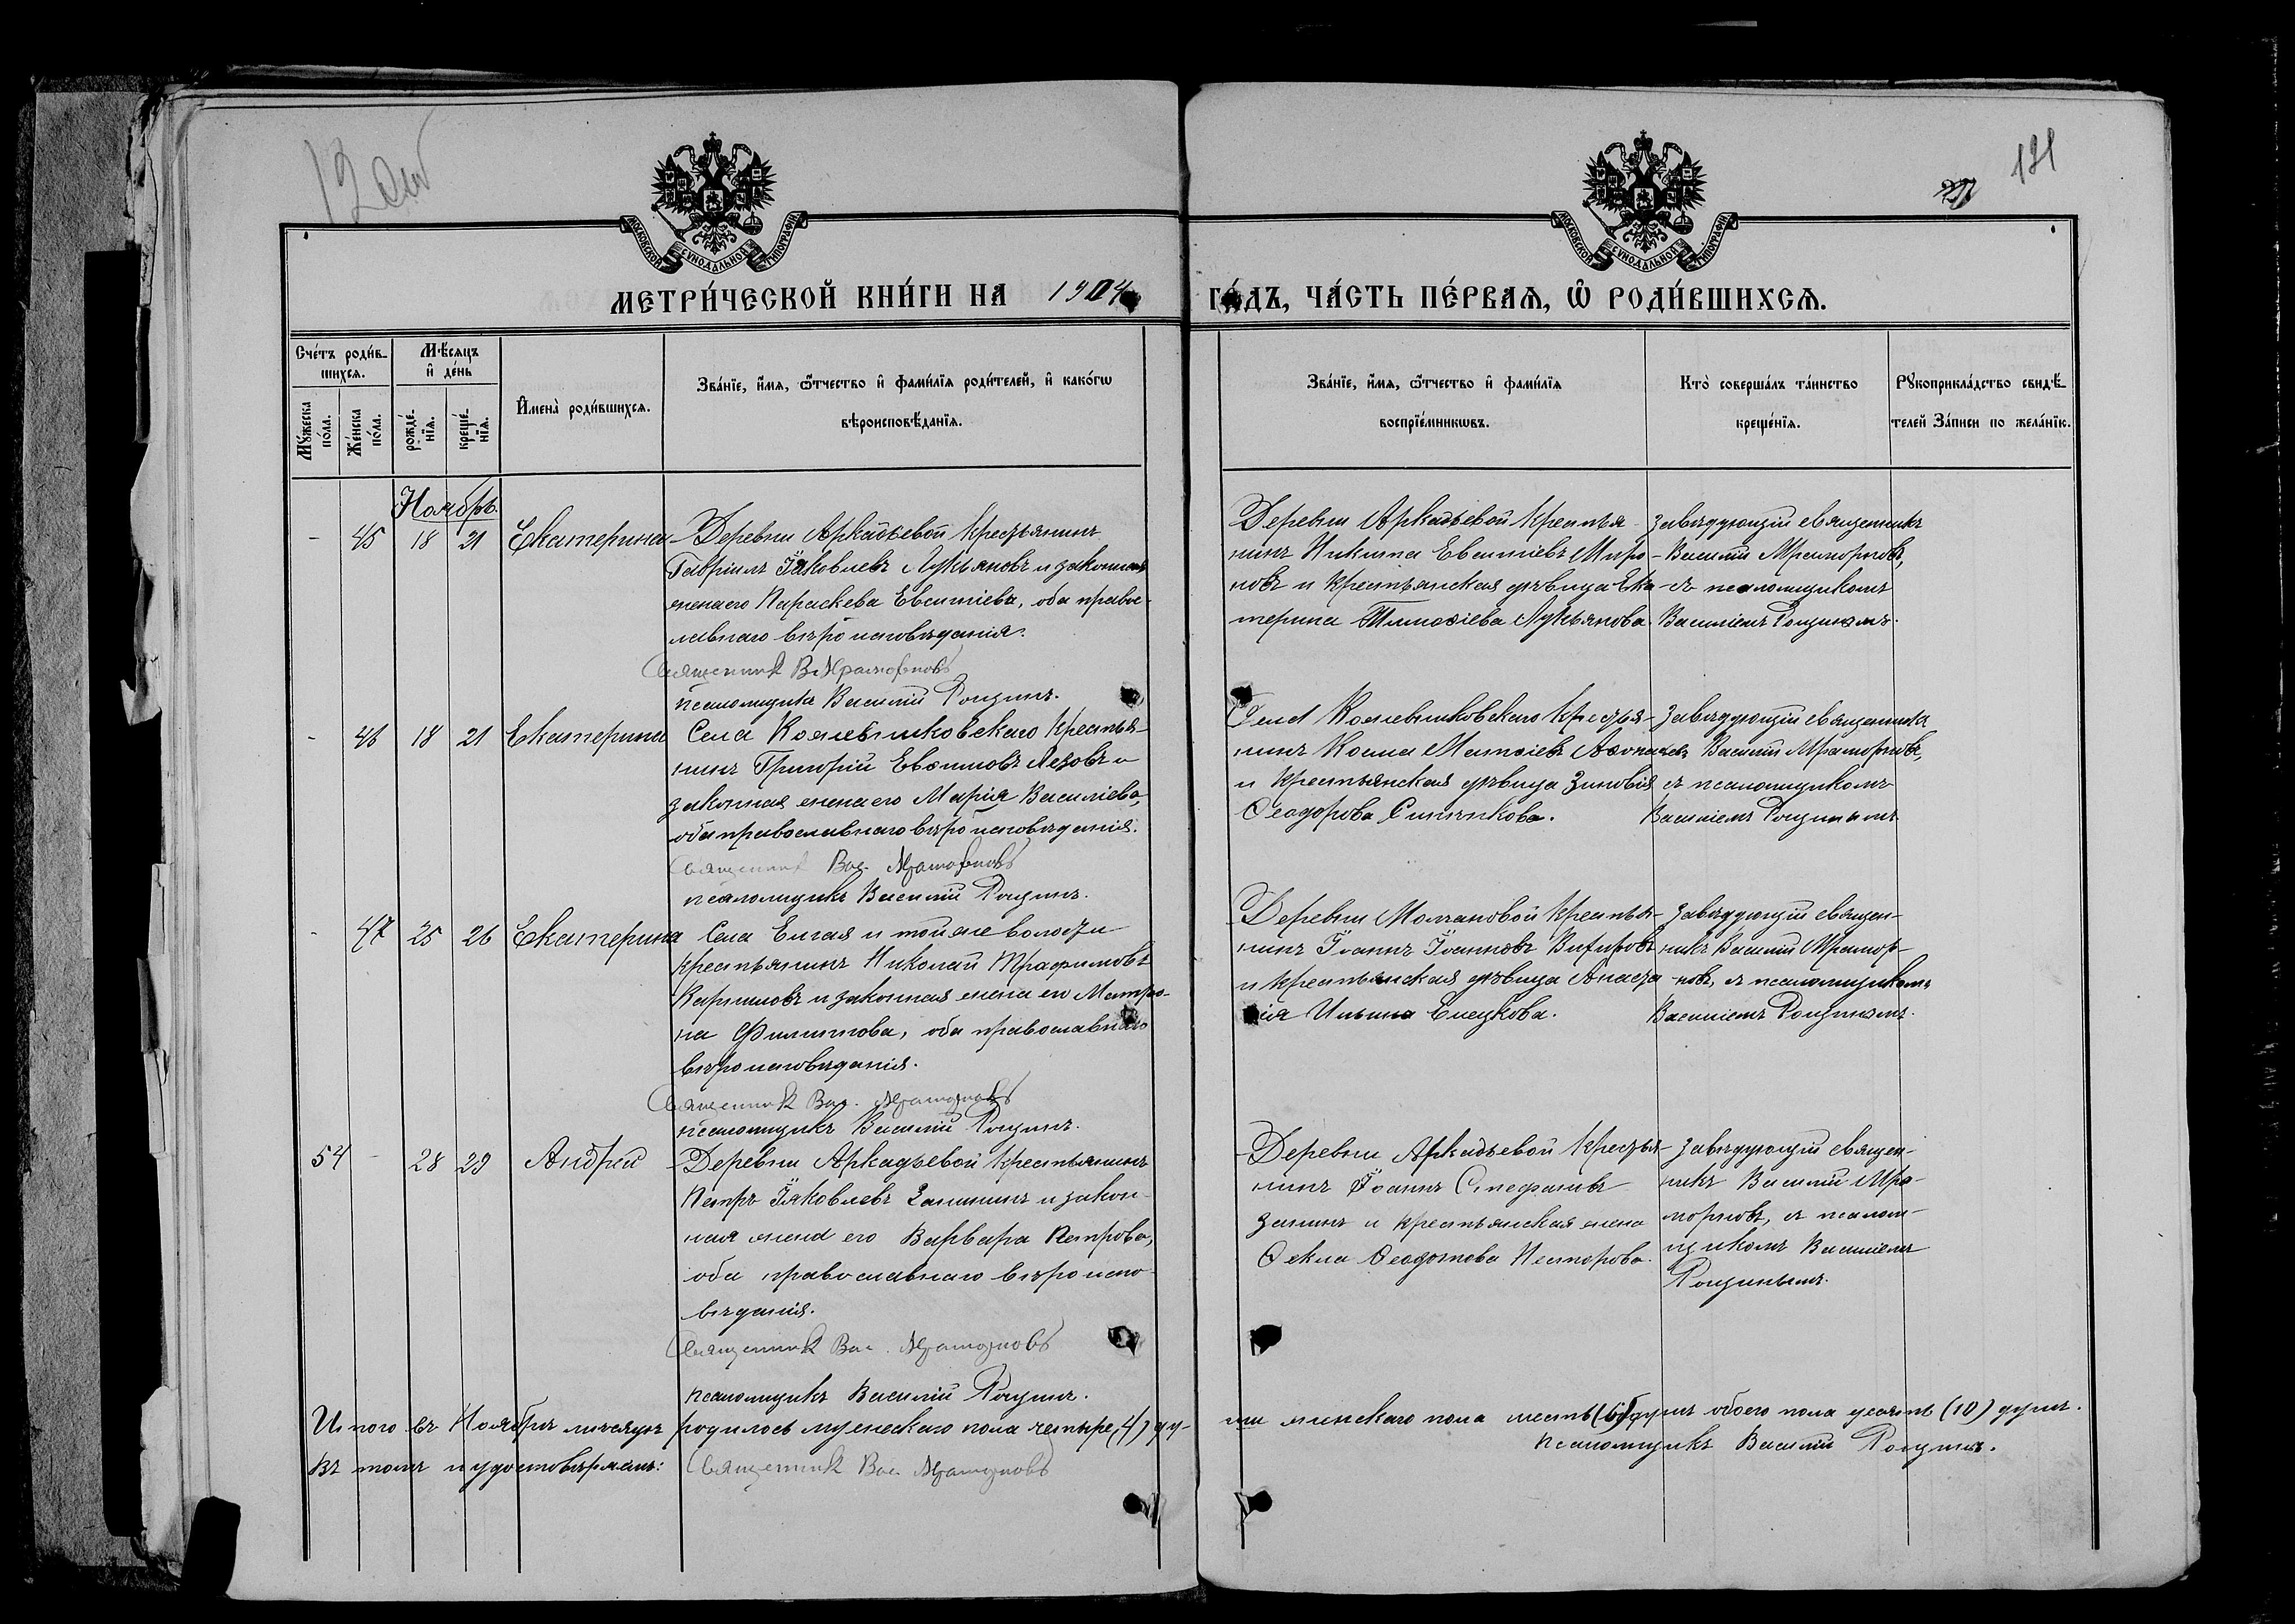 121
МОСКОВСКОЙ СѴНОДАЛЬНОЙ ТИПОГРАФІИ
МОСКОВСКОЙ СѴНОДАЛЬНОЙ ТИПОГРАФІИ
МЕТРИ́ЧЕСКОЙ КНИ́ГИ НА 1904 ГО́ДЪ, ЧА́СТЬ ПЕ́РВАЯ, Ѡ РОДИ́ВШИХСЯ.
Сче́тъ роди́в-
шихся.
Мѣ́сяцъ
и де́нь
Му́жеска по́ла.
Же́нска по́ла.
рожде́-нїя.
креще́-нїя.
И҆мена̀ роди́вшихся.
Зва́нїе, и҆́мя, ѻ҆́тчество и҆ фами́лїя роди́телей, и҆ како́гѡ
вѣроисповѣ́данїя.
Зва́нїе, и҆́мя, ѻ҆́тчество и҆ фами́лїя
воспрїе́мникѡвъ.
Кто̀ соверша́лъ та́инство
креще́нїя.
Рꙋкоприкла́дство свидѣ́-
телей за́писи по жела́нїю.
Ноябрь.
- 45 18 21 Екатерина
Деревни Аркадьевой крестьянинъ
Гавріилъ Іаковлевъ Лукьяновъ и законная
жена его Параскева Евсиміева, оба правос-
лавнаго вѣроисповѣданія.
Священникъ В. Мраморновъ
псаломщикъ Василій Рощинъ.
Деревни Аркадьевой крестья-
нинъ Никита Евсиміевъ Миро-
новъ и крестьянская дѣвица Ека-
терина Тимоѳіева Лукьянова.
Завѣдующій священникъ
Василій Мраморновъ,
съ псаломщикомъ
Василіемъ Рощинымъ.
- 46 18 21 Екатерина
Села крестья-
нинъ Григорій Евѳимовъ Лезовъ и
законная жена его Марія Василіева,
оба православнаго вѣроисповѣданія.
Священникъ Вас. Мраморновъ
псаломщикъ Василій Рощинъ.
Села крестья-
нинъ Косма Матѳіевъ
и крестьянская дѣвица Зиновія
Ѳеодорова Синичкова.
Завѣдующій священникъ
Василій Мраморновъ,
съ псаломщикомъ
Василіемъ Рощинымъ
- 47 25 26 Екатерина
Села Елгая и той же волости
крестьянинъ Николай Трафимовъ
Карпиловъ и законная жена его Матро-
на Филиппова, оба православнаго
вѣроисповѣданія.
Священникъ Вас. Мраморновъ
псаломщикъ Василій Рощинъ.
Деревни Молчановой крестья-
нинъ Іоаннъ Іоанновъ
и крестьянская дѣвица Анаста-
сія Ильина Елецкова.
Завѣдующій священ-
никъ Василій Мрамор-
новъ, съ псаломщикомъ
Василіемъ Рощинымъ.
54 - 28 29 Андрей
Деревни Аркадьевой крестьянинъ
Петръ Іаковлевъ Запинъ и закон-
ная жена его Варвара Петрова,
оба православнаго вѣроиспо-
вѣданія.
Священникъ Вас. Мраморновъ
псаломщикъ Василій Рощинъ.
Деревни Аркадьевой крестья-
нинъ Іоаннъ Стефановъ
Запинъ и крестьянская жена
Ѳекла Ѳеодотова Несторова.
Завѣдующій священ-
никъ Василій Мра-
морновъ, съ псалом-
щикомъ Василіемъ
Рощинымъ.
Итого въ Ноябрѣ мѣсяцѣ родилось мужескаго пола четыре (4) ду-
ши женскаго пола шесть (6) душъ обоего пола десять (10) душъ.
Въ томъ и удостовѣряемъ: Священникъ Вас. Мраморновъ
Псаломщикъ Василій Рощинъ.